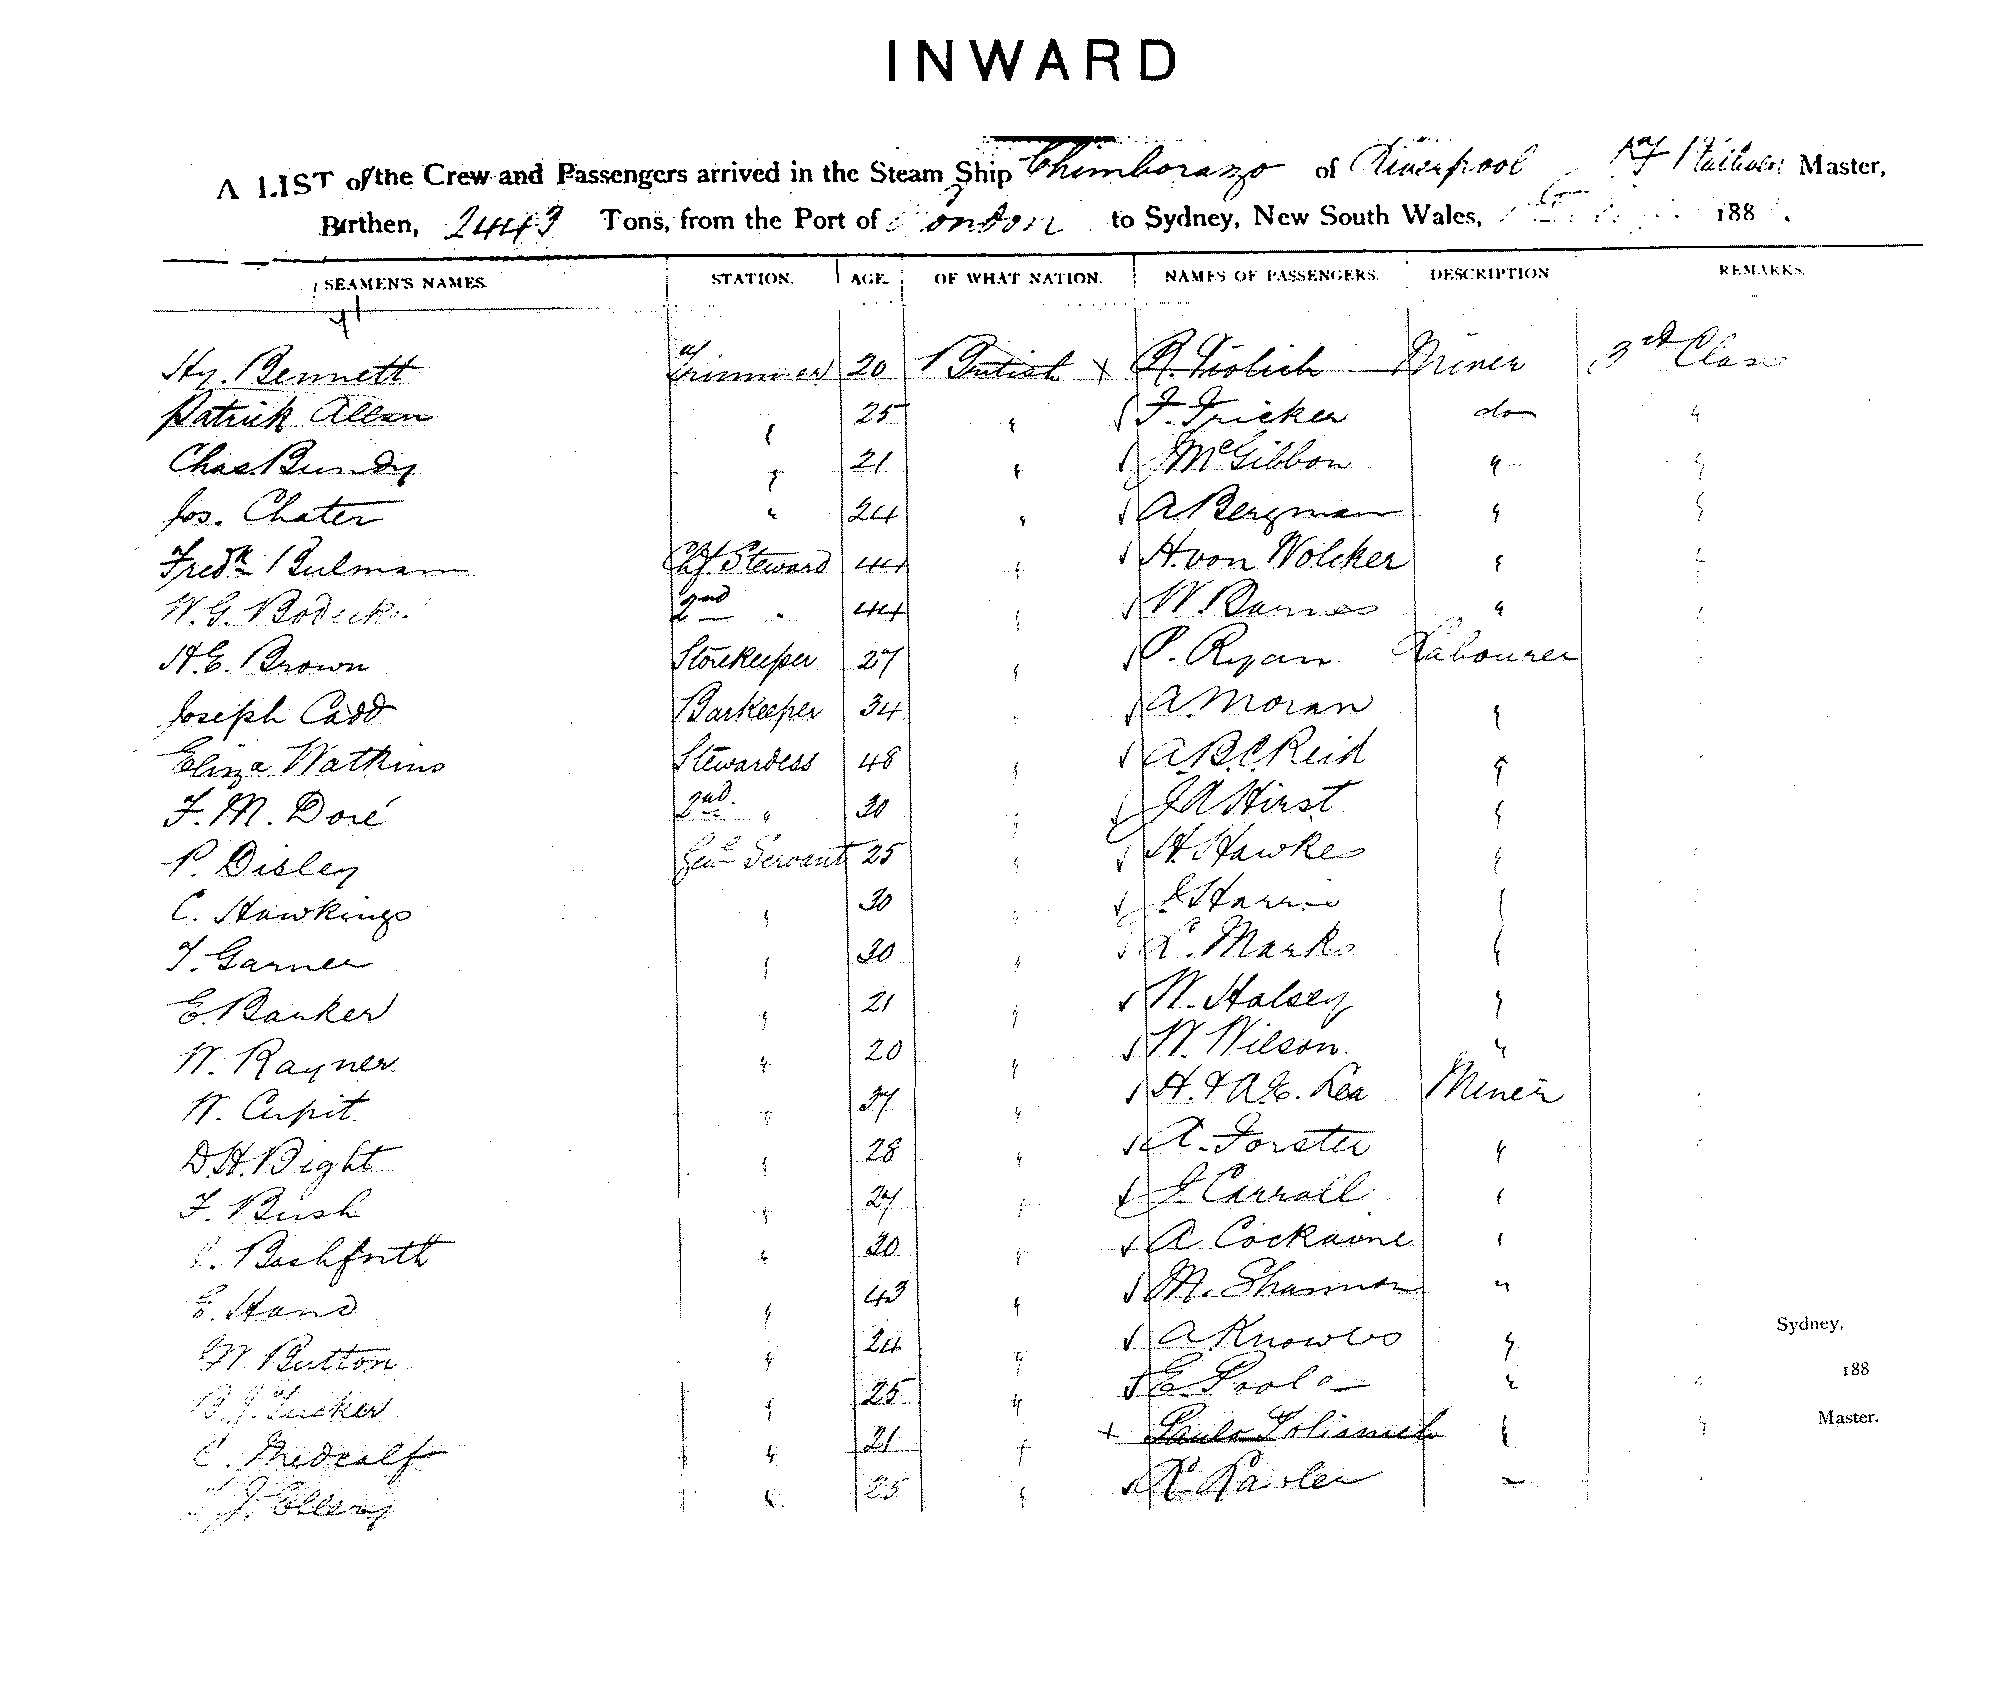 INWARD
A LIST of the Crew and Passengers arrived in the Steam Ship Chimborazo of Liverpool Master,
Burthen, 2443 Tons, from the Port of London to Sydney, New South Wales, 188
SEAMEN'S NAMES. STATION. AGE. OF WHAT NATION. NAMES OF PASSENGERS. DESCRIPTION REMARKS.
Hy. Bennett Trimmer 20 British x Miner 3rd Class
Patrick Allen " 25 " F. Tricker do "
Chas Bundy " 21 " J McGibbon " "
Jos. Chater " 24 " A Bergman " "
Fredk Bulman Chf. Steward 44 " H. von Wolcker " "
W. G. 2nd " 44 " W. Barnes " "
H. E. Brown Storekeeper 27 " P. Ryan Labourer
Joseph Cadd Barkeeper 34 " A. Moran "
Eliza Watkins Stewardess 48 " A. B. C. Reid "
F. M. Doré 2nd " 30 " J A Hirst "
P. Disley Genl Servant 25 " H. Hawkes "
C. Hawkings " 30 " J Harris "
T. Garner " 30 " L. Marks "
E. Barker " 21 " W. Halsey "
W. Rayner " 20 " W. Wilson "
W. Cupit " 37 " H. & A. E. Lea Miner
D. H. Bight " 28 " A. Forster "
F. Bush " 27 " J. Carroll "
Bashforth " 30 " A Cockaine "
E. Hand " 43 " M. Shannon "
W. Button " 24 " A Knowles "
B. J. Tucker " 25 " E. Poole " "
C. Medcalf " 21 " x "
J. Ellery " 25 " "
Sydney,
188
Master.